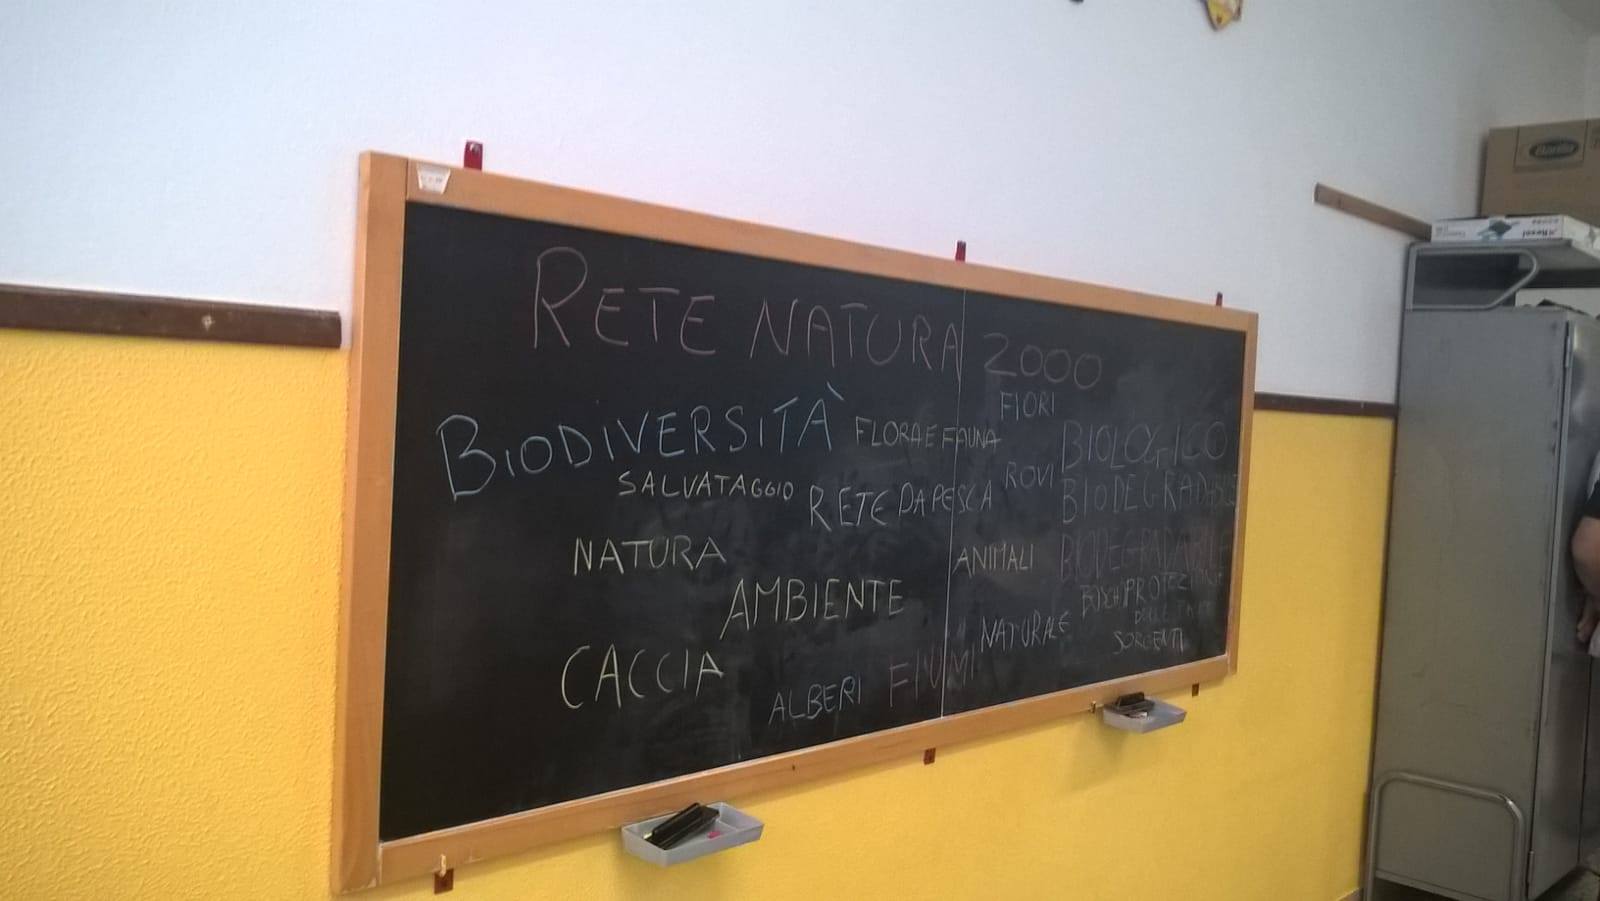 RETE NATURA 2000
BIODIVERSITÀ
FLORA E FAUNA
FIORI
BIOLOGICO
SALVATAGGIO
RETE DA PESCA
ROVI
NATURA
ANIMALI
AMBIENTE
NATURALE
BOSCHI
SORGENTI
CACCIA
ALBERI
FIUMI
Barilla